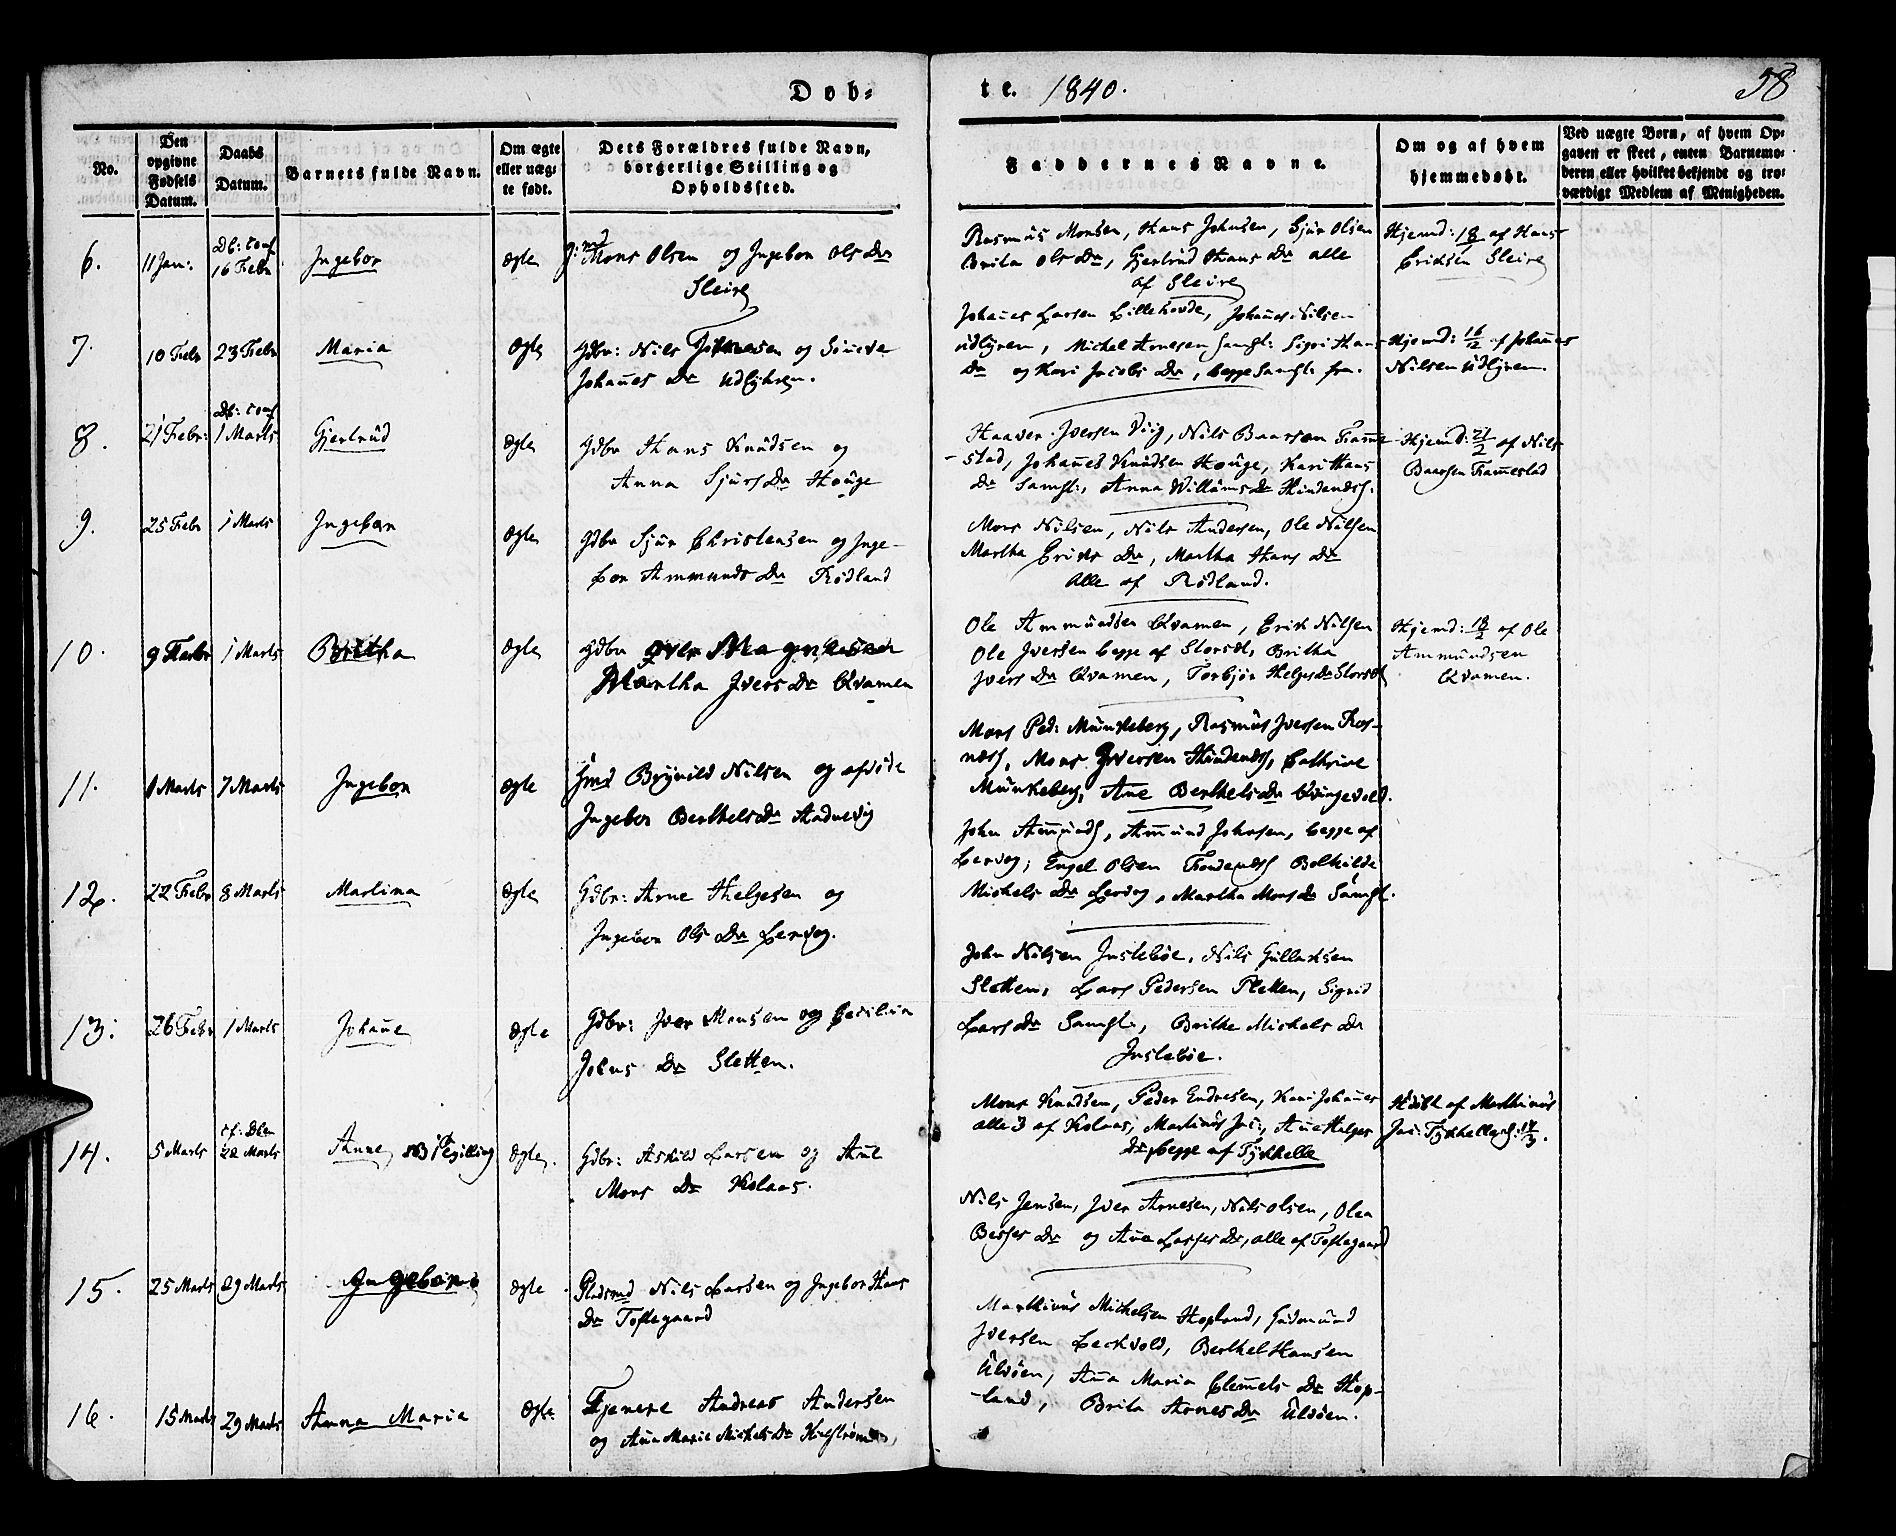 Døb-
te. 1840.
58
No.
Den opgivne Fødsels Datum.
Daabs Datum.
Barnets fulde Navn.
Om ægte eller uægte født.
Dets Forældres fulde Navn, borgerlige Stilling og Opholdssted.
Faddernes Navne.
Om og af hvem hjemmedøbt.
Ved uægte Børn, af hvem Opgaven er skeet, enten Barnemoderen eller hvilket bekjendt og troværdigt Medlem af Menigheden.
6. 11 Jan: Db: conf 16 Febr Ingebor ægte
Mons Olsen og Ingebor Ols Dr
Sleire
Rasmus Monsen, Hans Johnsen, Sjur Olsen
Brita Ols Dr, Gjertrud Hans Dr alle
af Sleire
Hjemd: 18/1 af Hans
Ericksen Sleire
7. 10 Febr 23 Febr Maria ægte
Gdbr: Nils Johnesen og Sineva
Johanes Dr Udlyhren.
Johanes Larsen Lillehovde, Johanes Nilsen
Udlyren, Michel Arnesen Samst: Sigri Hans
Dr og Kari Jacobs Dr, begge Samst: fra.
Hjemd: 16/2 af Johanes
Nilsen Udlyren.
8. 21 Febr: Db: conf 1 Marts Gjertrud ægte
Gdbr Hans Knudsen og
Anna Sjurs Dr Houge
Haaver Iversen Viig, Nils Baarsen Framme
-stad, Johanes Knudsen Houge, Kari Hans
Dr Samst:, Anna Willums Dr Hindenæs:
Hjemd: 21/2 af Nils
Baarsen Framestad
9. 25 Febr 1 Marts Ingebor ægte
Gdbr Sjur Christensen og Inge-
bor Ammunds Dr Rødland
Mons Nilsen, Nils Andersen, Ole Nilsen
Martha Ericks Dr, Martha Hans Dr
alle af Rødland.
10. 9 Febr 1 Marts Britha ægte
Gdbr Iver Magnusen
Martha Ivers Dr Qvamen
Ole Ammundsen Qvamen, Erik Nilsen
Ole Iversen begge af Storset, Britha
Ivers Dr Qvamen, Torbjør Helges Dr Storset
Hjemd: 18/2 af Ole
Ammundsen
Qvamen.
11. 1 Marts 7 Marts Ingebor ægte
Gmd Brynild Nilsen og afdøde
Ingebor Berthels Dr Andvevig
Mons Ped: Munkeberg, Rasmus Iversen Ros-
næs, Mons Iversen Hindenæs, Cathrine
Munkeberg, Ane Berthels Dr Qvingevold.
12. 22 Febr 8 Marts Martina ægte
Gdbr: Arne Helgesen og
Ingebor Ols Dr Lervog.
John Amunds, Amund Johnsen, begge af
Lervog, Engel Olsen Bolhilde
Michels Dr Lervog, Martha Mons Dr Samst.
13. 26 Febr 1 Marts Johane ægte
Gdbr: Iver Monsen og Cecilia
Johns Dr Sletten.
John Nilsen Instebøe, Nils Gullaksen
Sletten, Lars Pedersen Sletten, Sigrid
Lars Dr Samst:, Brithe Michels Dr
Instebøe.
14. 5 Marts cf: Dben 22 Marts Anne ægte.
Gdbr: Askild Larsen og Ane
Mons Dr Kolaas.
Mons Knudsen, Peder Endresen, Kari Johanes
alle 3 af Kolaas, Martinus Jac:, Ane Helges
Dr, begge af Tykhelle
Hdøbt af Marthinus
Jac: Tykhelle 17/3.
15. 25 Marts 29 Marts Ingebor ægte
Pladsmd Nils Larsen og Ingebor Hans
Dr Toftegaard
Nils Jensen, Iver Arnesen, Nils Olsen, Olea
Besses Dr og Ane Larses Dr, alle af Toftegaard
16. 15 Marts 29 Marts Anna Marie ægte
Tjenere Andreas Andersen
og Ana Marie Michels Dr
Marthinus Michelsen Hopland, Gudmund
Iversen Leckvold, Berthel Hansen
Uldøen, Ana Maria Clemets Dr Hop-
-land, Brita Arnes Dr Uldøen.